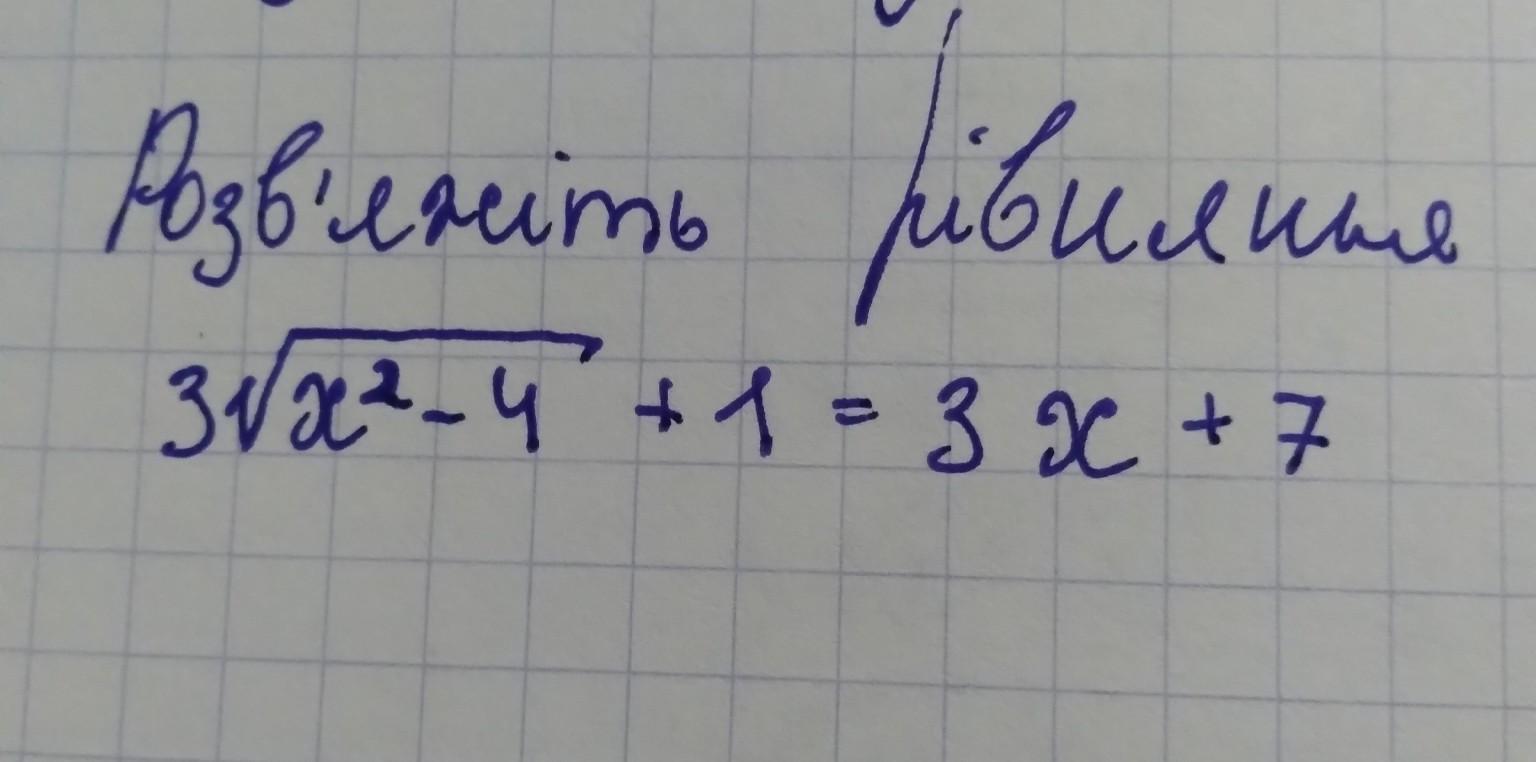 Розв'яжіть рівняння
3√x² - 4 + 1 = 3x + 7